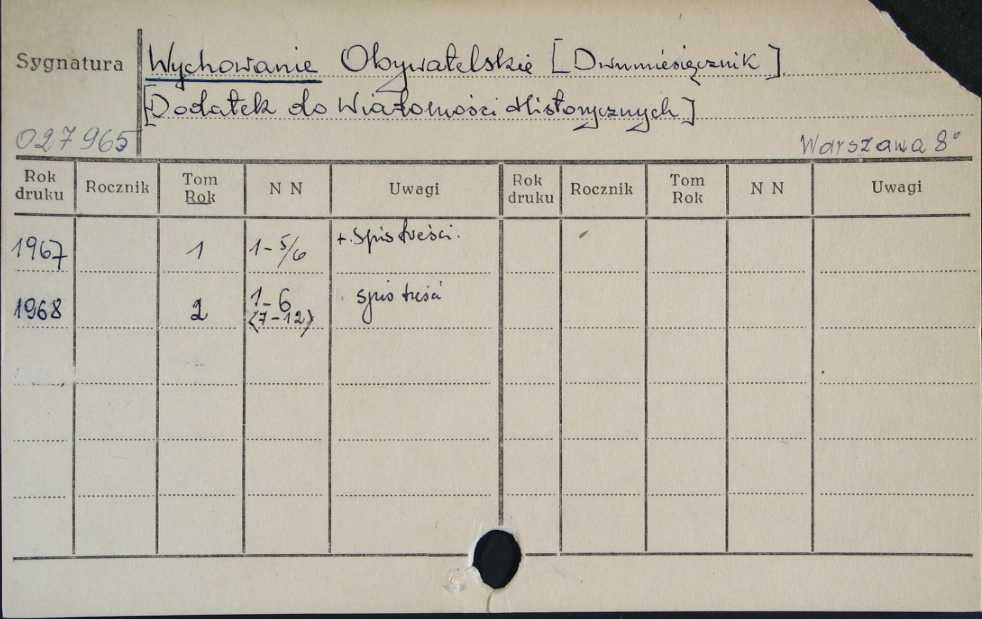 Sygnatura Wychowanie Obywatelskie [Dwumiesięcznik]
[Dodatek do Wiadomości Historycznych]
027965 Warszawa 8°
Rok druku Rocznik Tom Rok N N Uwagi Rok druku Rocznik Tom Rok N N Uwagi
1967 1 1-5/6 +. Spis treści.
1968 2 1-6 (7-12) spis treść